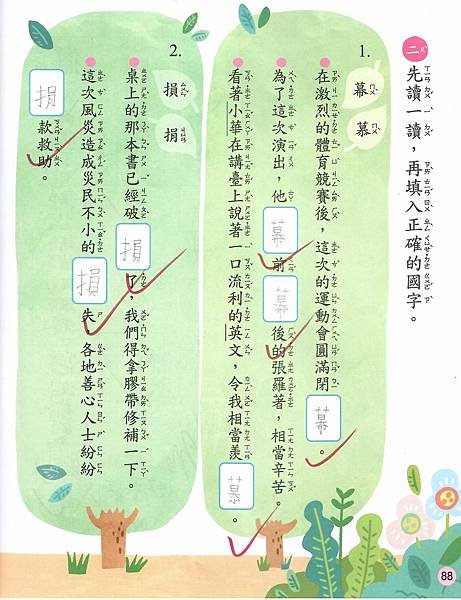 二 先讀一讀，再填入正確的國字。
1. 幕 慕
在激烈的體育競賽後，這次的運動會圓滿閉幕。
為了這次演出，他幕前幕後的張羅著，相當辛苦。
看著小華在講臺上說著一口流利的英文，令我相當羨慕。
2. 損 捐
桌上的那本書已經破損了，我們得拿膠帶修補一下。
這次風災造成災民不小的損失，各地善心人士紛紛
捐款救助。
88